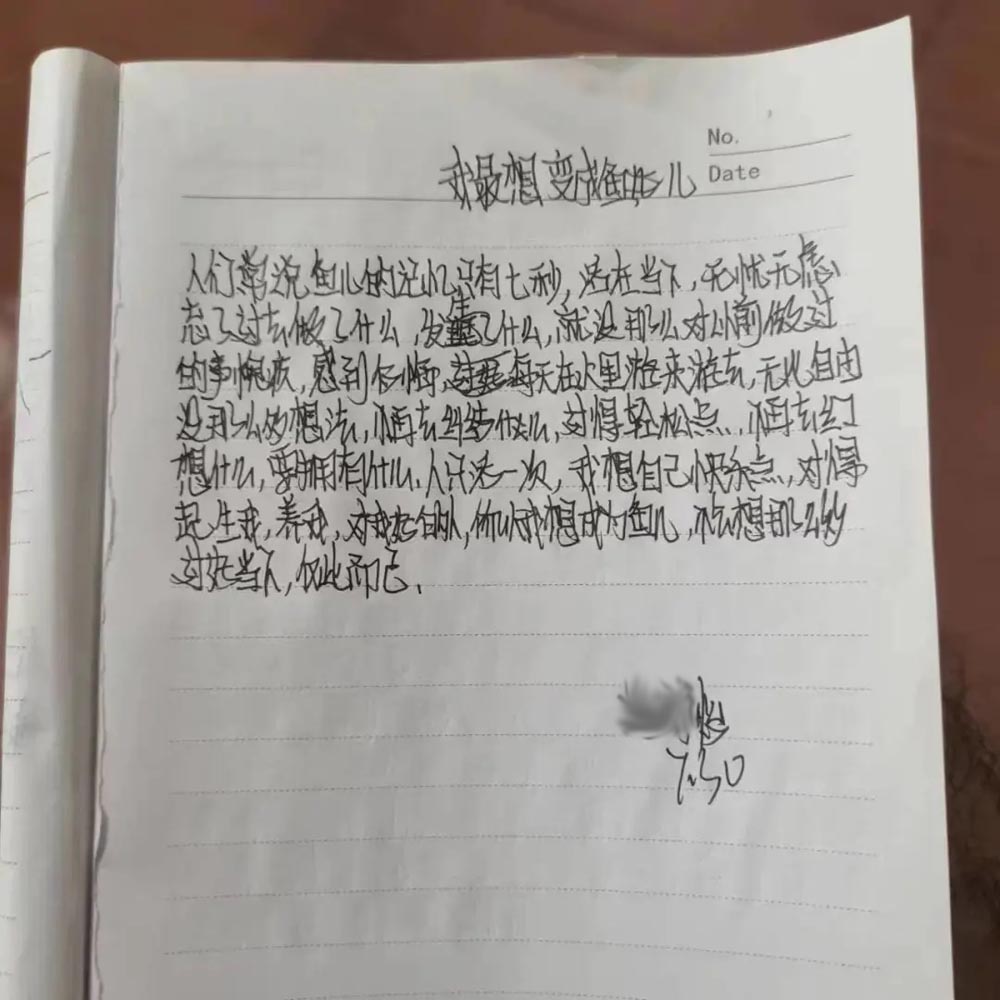 No.
Date
我最想变成鱼儿
人们常说鱼儿的记忆只有七秒,活在当下,无忧无虑
忘了过去做了什么,发生了什么,就没那么对以前做过
的事愧疚,感到后悔,每天在水里游来游去,无比自由
没那么多想法,不再去纠结什么,过得轻松点,不再去幻
想什么,要拥有什么.人只活一次,我想自己快乐点,对得
起生我,养我,对我好的人,所以我想成为鱼儿,不去想那么多
过好当下,仅此而已.
7.30